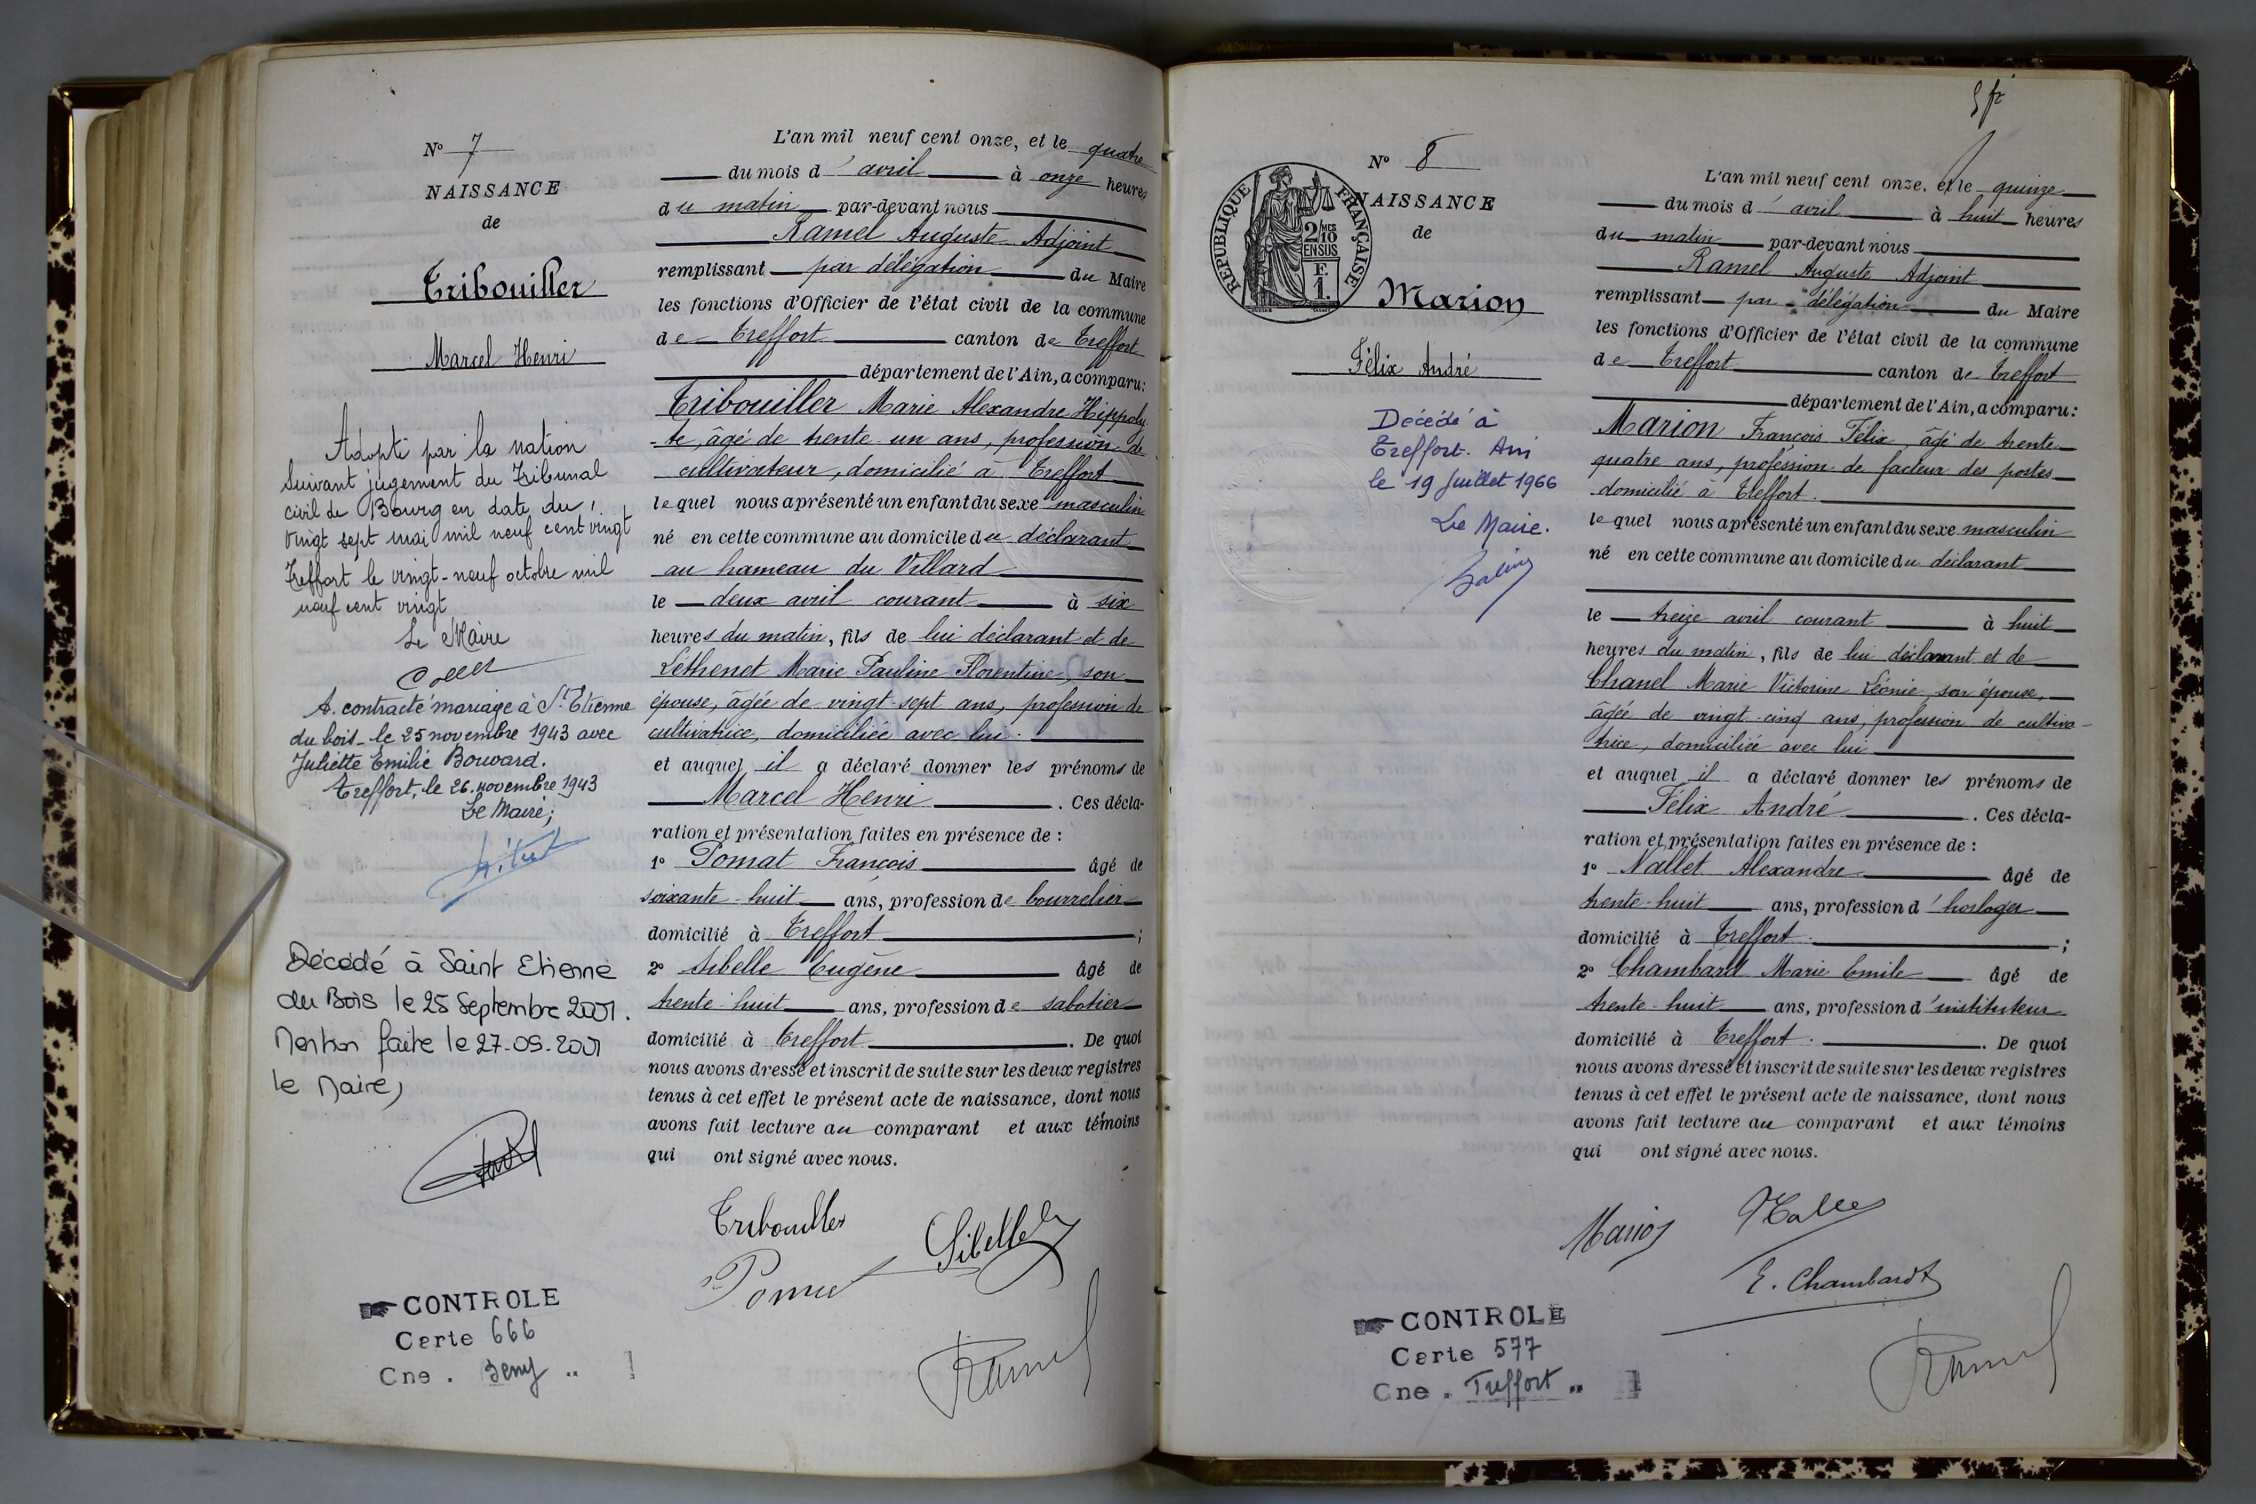 N° 7
NAISSANCE
de
Tribouiller
Marcel Henri
Adopté par la nation
suivant jugement du Tribunal
civil de Bourg en date du
vingt sept mai mil neuf cent vingt
Treffort le vingt-neuf octobre mil
neuf cent vingt
Le Maire
A contracté mariage à St Etienne
du bois le 25 novembre 1943 avec
Juliette Emilie Bouvard.
Treffort, le 26 novembre 1943
Le Maire;
Décédé à Saint Etienne
du Bois le 25 Septembre 2001.
Mention faite le 27-09-2001
le Maire,
CONTROLE
Carte 666
Cne .
L'an mil neuf cent onze, et le quatre
du mois d'avril à onze heures
du matin par-devant nous
Ramel Auguste Adjoint
remplissant par délégation du Maire
les fonctions d'Officier de l'état civil de la commune
de Treffort canton de Treffort
département de l'Ain, a comparu:
Tribouiller Marie Alexandre Hippoly-
-te, âgé de trente un ans, profession de
cultivateur, domicilié à Treffort
lequel nous a présenté un enfant du sexe masculin
né en cette commune au domicile du déclarant
au hameau du Villard
le deux avril courant à six
heures du matin, fils de lui déclarant et de
Léthenet Marie Pauline Florentine, son
épouse, âgée de vingt-sept ans, profession de
cultivatrice, domiciliée avec lui.
et auquel il a déclaré donner les prénoms de
Marcel Henri . Ces décla-
ration et présentation faites en présence de :
1° Pomat François âgé de
soixante-huit ans, profession de bourrelier
domicilié à Treffort ;
2° Sibelle Eugène âgé de
trente-huit ans, profession de sabotier
domicilié à Treffort . De quoi
nous avons dressé et inscrit de suite sur les deux registres
tenus à cet effet le présent acte de naissance, dont nous
avons fait lecture au comparant et aux témoins
qui ont signé avec nous.
Tribouiller
Sibelle
Pomat
Ramel
N° 8
NAISSANCE
de
RÉPUBLIQUE FRANÇAISE
2/10 MES
EN SUS
F.
1.
Marion
Félix André
Décédé à
Treffort. Ain
le 19 Juillet 1966
Le Maire.
CONTROLE
Carte 577
Cne . Treffort
L'an mil neuf cent onze, et le quinze
du mois d'avril à huit heures
du matin par-devant nous
Ramel Auguste Adjoint
remplissant par délégation du Maire
les fonctions d'Officier de l'état civil de la commune
de Treffort canton de Treffort
département de l'Ain, a comparu:
Marion François Félix, âgé de trente
quatre ans, profession de facteur des postes
domicilié à Treffort.
lequel nous a présenté un enfant du sexe masculin
né en cette commune au domicile du déclarant
le treize avril courant à huit
heures du matin, fils de lui déclarant et de
Chanel Marie Victorine Léonie, son épouse,
âgée de vingt-cinq ans, profession de cultiva-
trice, domiciliée avec lui
et auquel il a déclaré donner les prénoms de
Félix André . Ces décla-
ration et présentation faites en présence de :
1° Nallet Alexandre âgé de
trente-huit ans, profession d'horloger
domicilié à Treffort. ;
2° Chambard Marie Emile âgé de
trente-huit ans, profession d'instituteur
domicilié à Treffort. . De quoi
nous avons dressé et inscrit de suite sur les deux registres
tenus à cet effet le présent acte de naissance, dont nous
avons fait lecture au comparant et aux témoins
qui ont signé avec nous.
Marion
Nallet
E. Chambard
Ramel